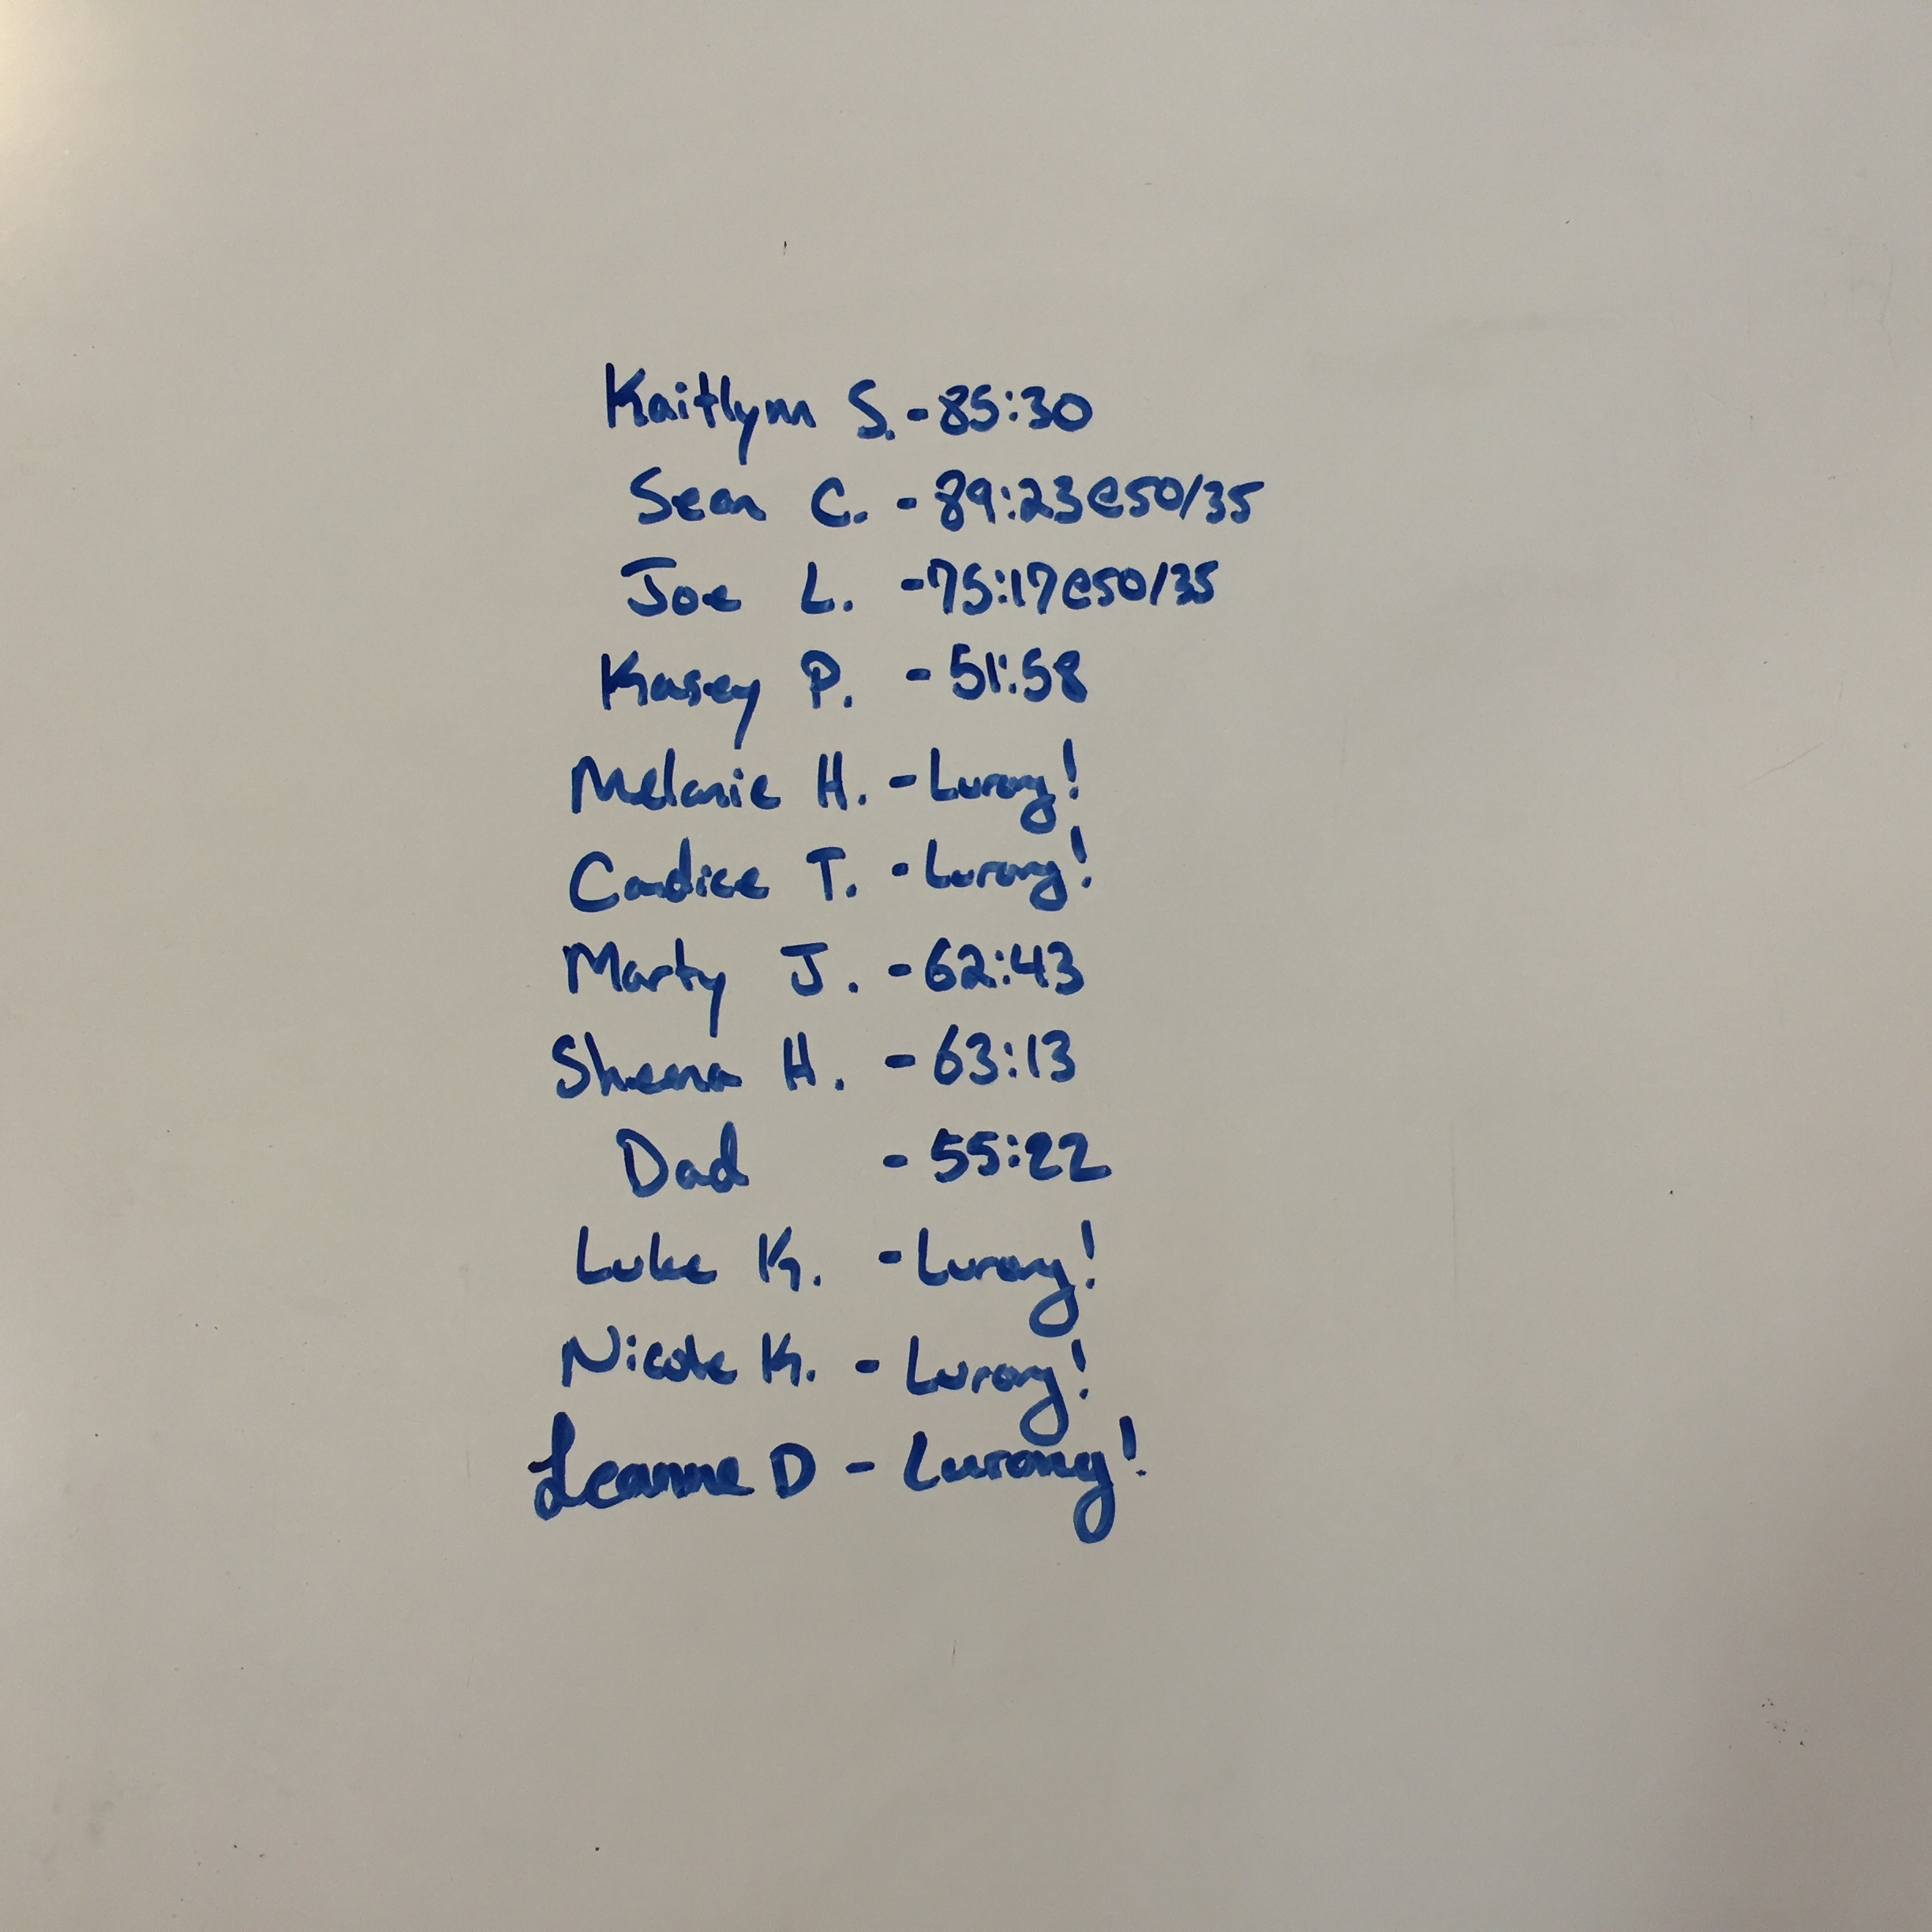 Kaitlynn S. - 85:30
Sean C. - 89:23@50/35
Joe L. - 75:17@50/35
Kasey P. - 51:58
Melanie H. - Lurong!
Candice T. - Lurong!
Marty J. - 62:43
Sheena H. - 63:13
Dad - 55:22
Luke K. - Lurong!
Nicole K. - Lurong!
Leanne D - Lurong!